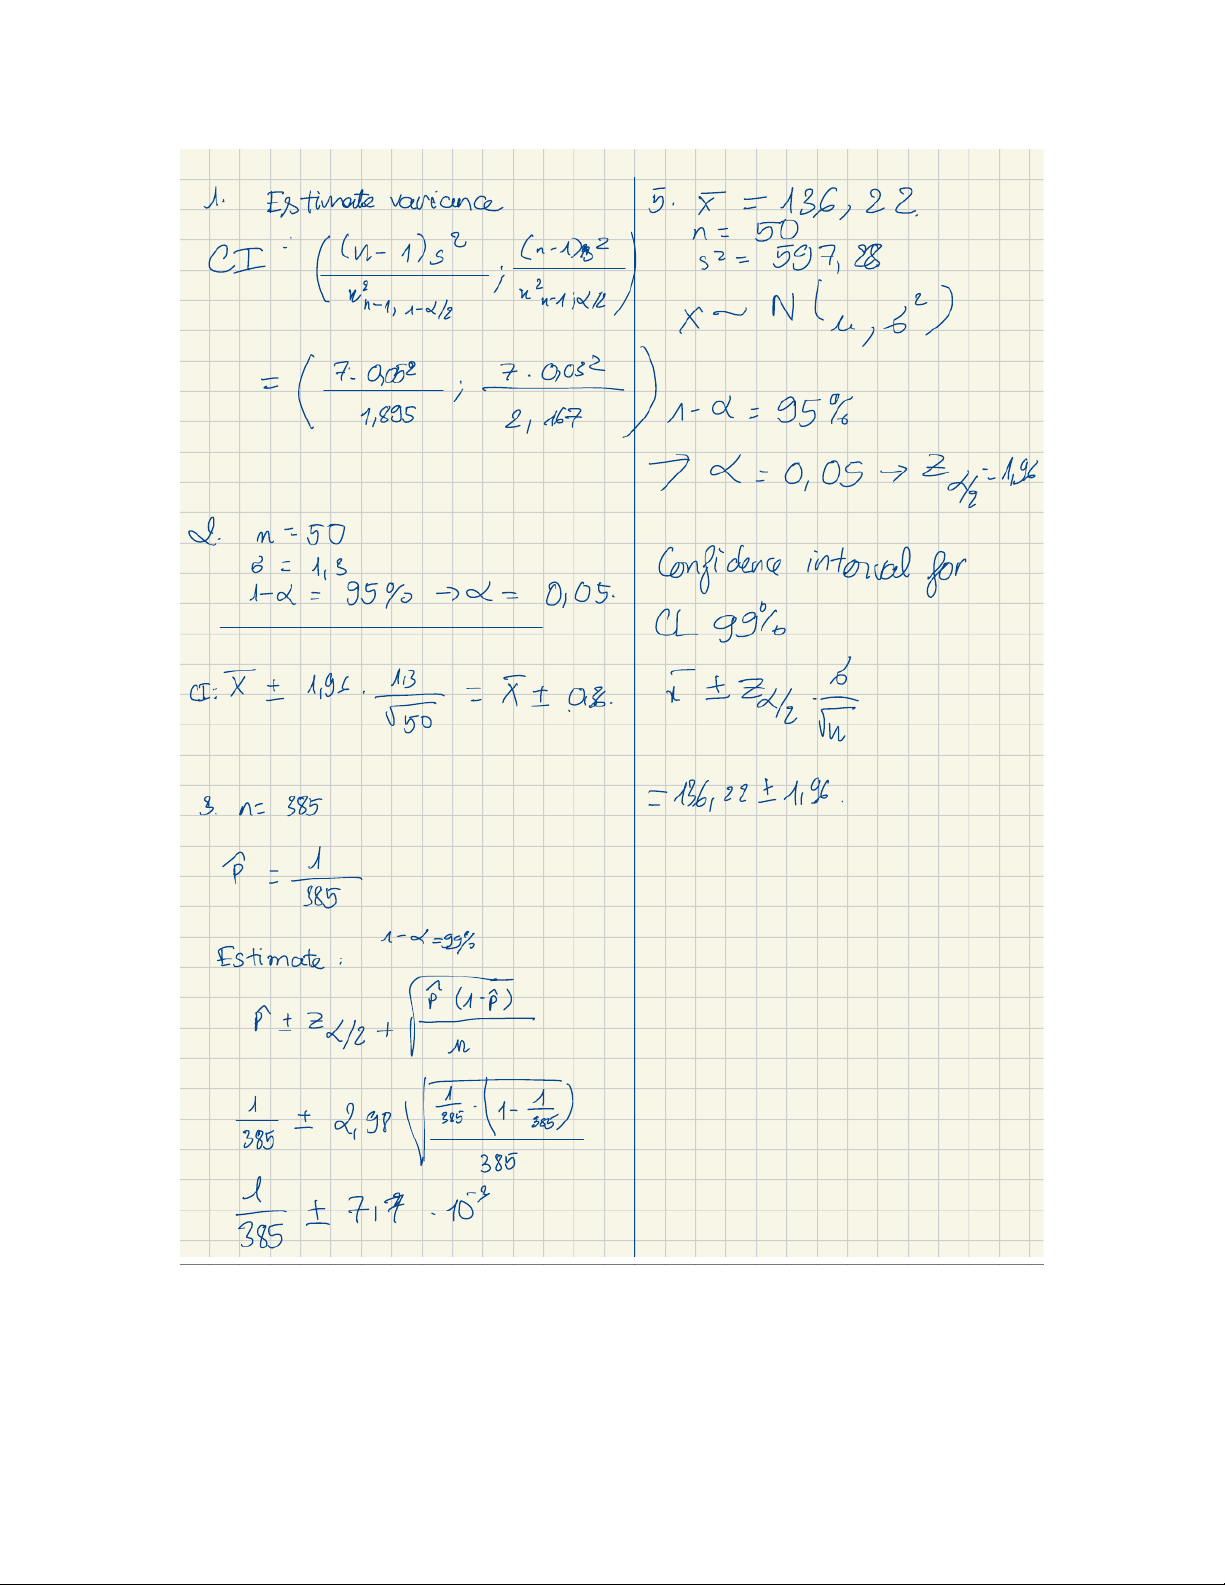 1. Estimate variance
CI : ( (n-1)s² / x²n-1, 1-α/2 ; (n-1)s² / x²n-1, α/2 )
= ( 7 · 0,05² / 1,895 ; 7 · 0,03² / 2,167 )
2. n = 50
σ = 1,3
1-α = 95% → α = 0,05.
CI: x̄ ± 1,96 · 1,3 / √50 = x̄ ±
3. n = 385
p̂ = 1 / 385
1-α = 99%
Estimate :
p̂ ± z α/2 + √( p̂ (1-p̂) / n )
1 / 385 ± 2,98 √( 1/385 · (1 - 1/385) / 385 )
1 / 385 ± 7,7 · 10⁻³
5. x̄ = 136,22
n = 50
s² = 597,28
x ~ N(μ, σ²)
1-α = 95%
→ α = 0,05 → z α/2 = 1,96
Confidence interval for
CL 99%
x̄ ± z α/2 · σ / √n
= 136,22 ± 1,96.